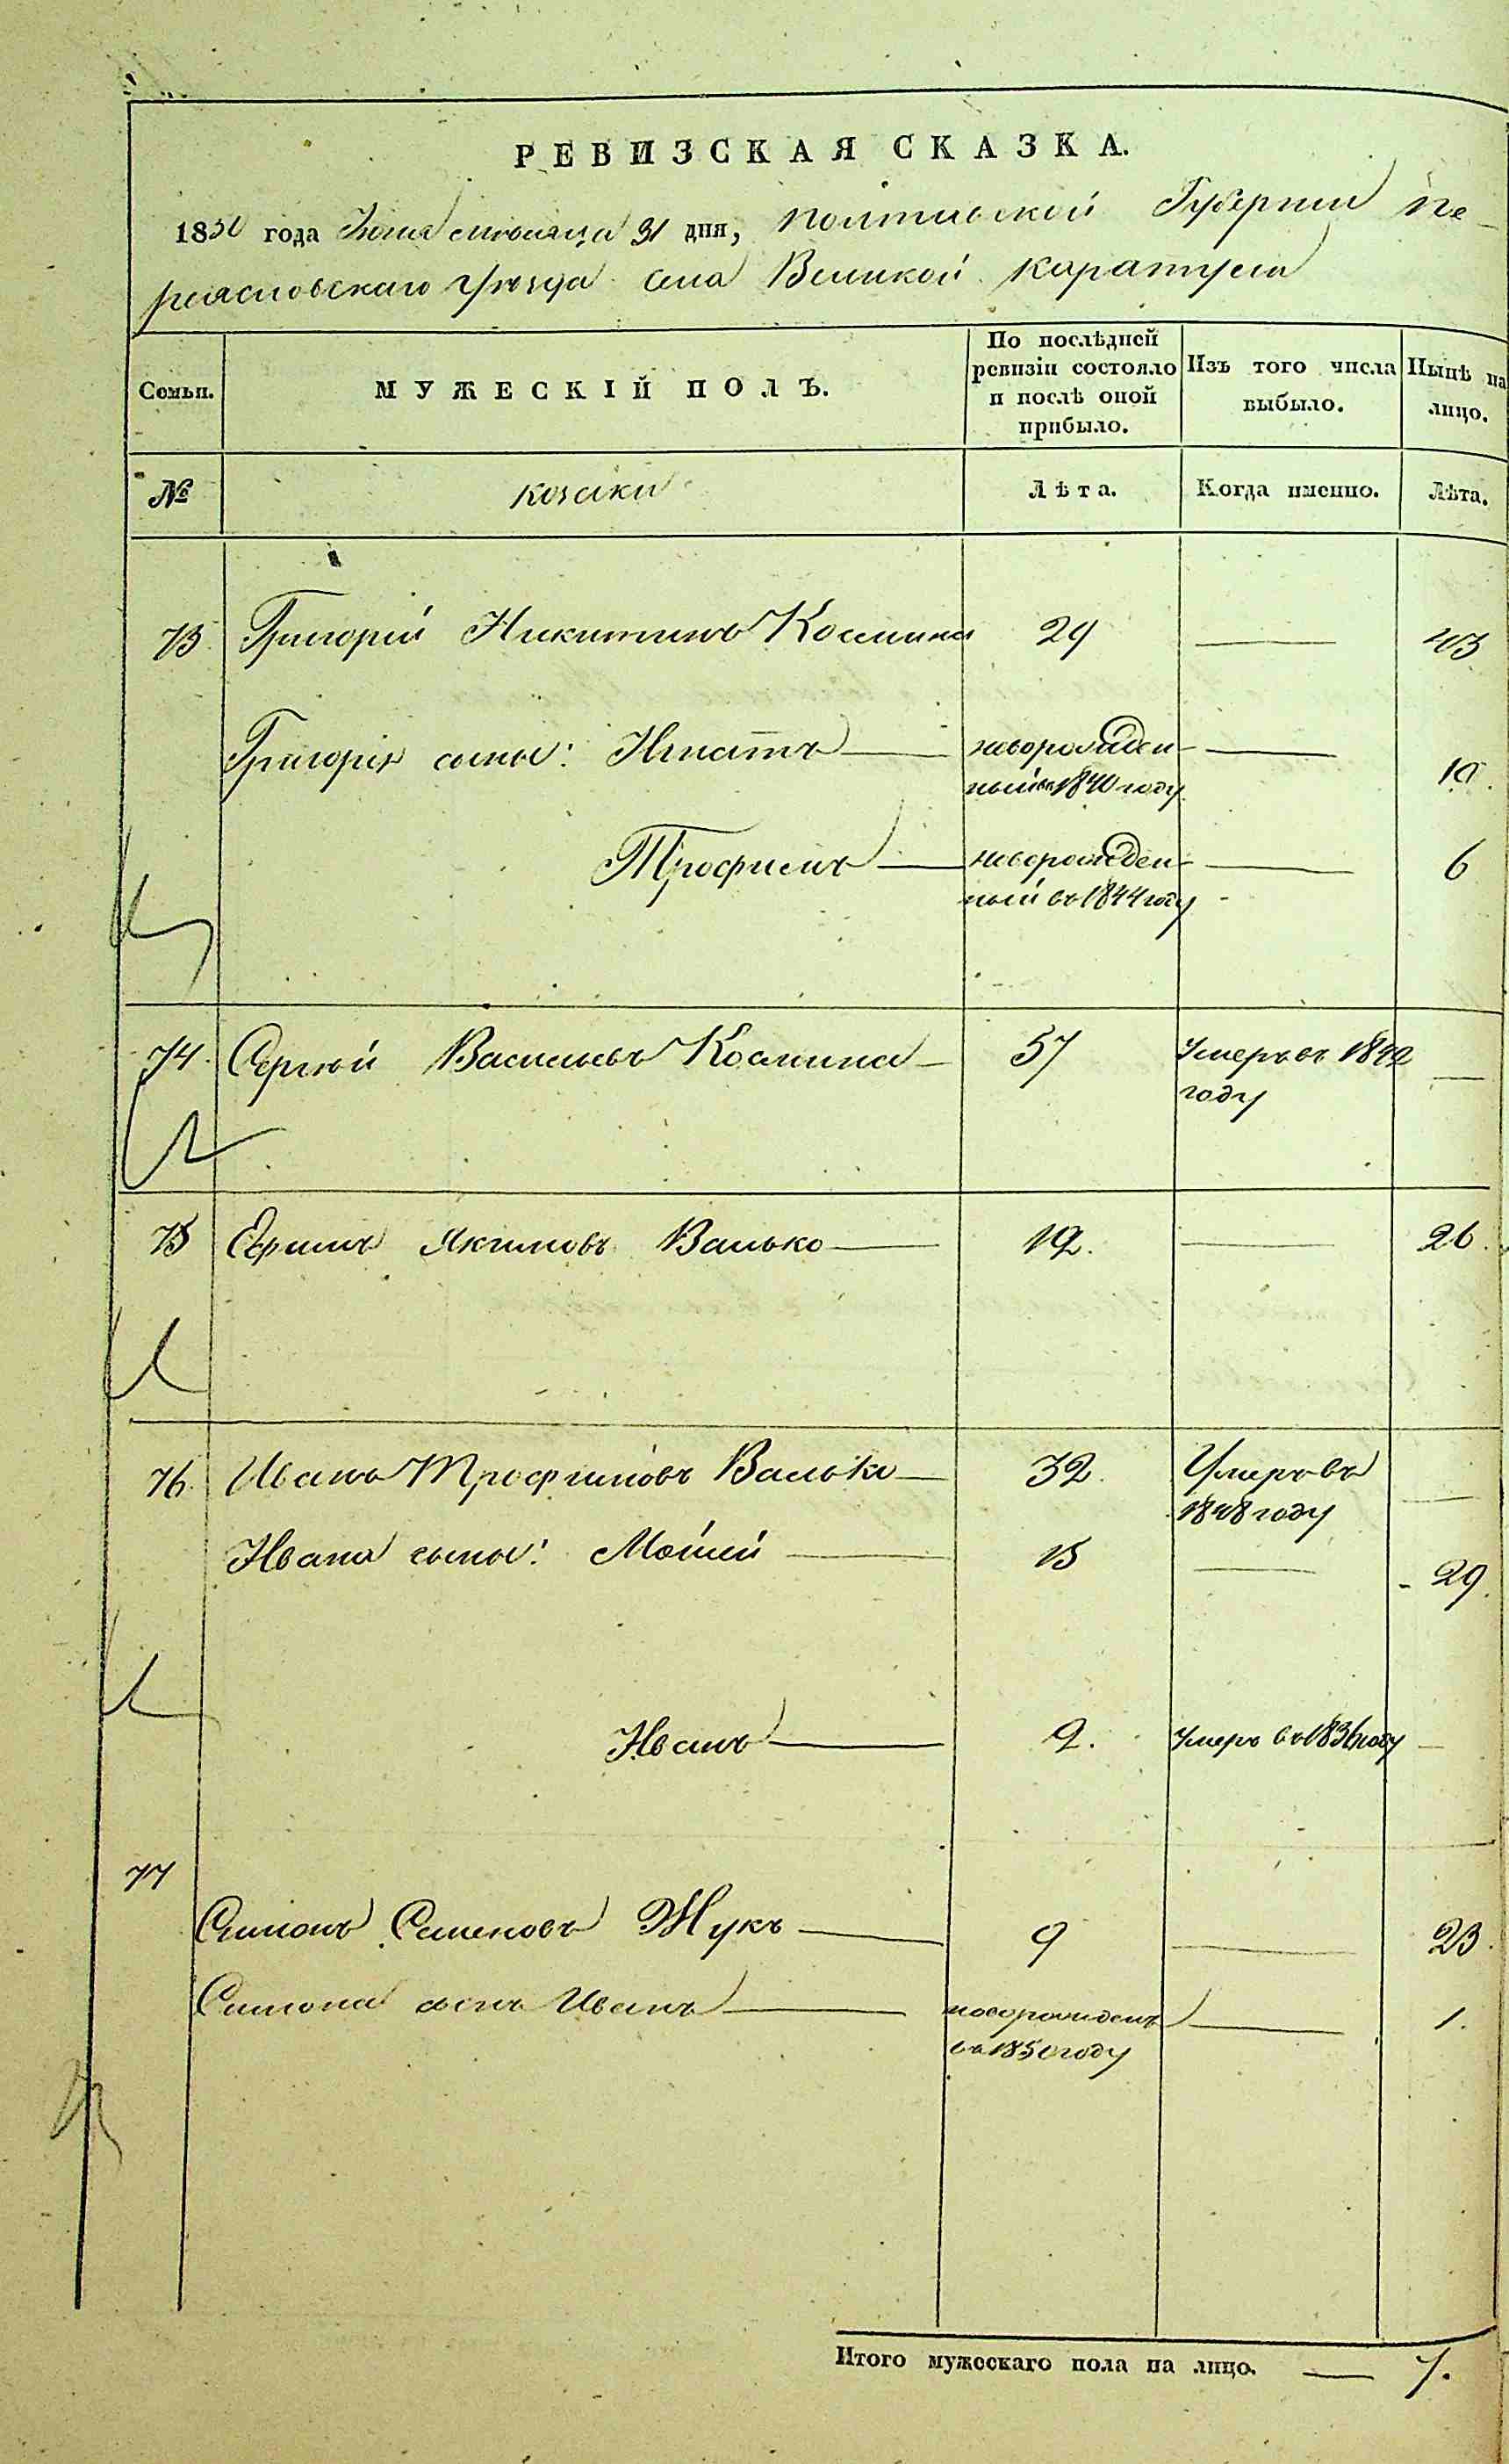 РЕВИЗСКАЯ СКАЗКА.
1850 года Июля мѣсяца 31 дня, Полтавской Губерніи Пе-
реяславскаго Уѣзда села Великой Каратули
Семьи.
МУЖЕСКІЙ ПОЛЪ.
По послѣдней ревизіи состояло и послѣ оной прибыло.
Изъ того числа выбыло.
Нынѣ на лицо.
№ козаки Лѣта. Когда именно. Лѣта.
73 Григорій Никитинъ 29 — 43
Григорія сыны: Игнатъ — новорожден- — 10.
ный въ 1840 году
Трофимъ — новорожден- — 6
ный въ 1844 году
74. Сергѣй Васильевъ 57 Умеръ въ 1842 —
году
75 Ефимъ Якимовъ Валько — 12. — 26.
76. Иванъ Трофимовъ Валько — 32. Умеръ въ —
1848 году
Ивана сыны: Мойсей — 15 — 29.
Иванъ — 2. Умеръ въ 1836 году —
77
Симонъ Семеновъ Жукъ — 9 — 23.
Симона сынъ Иванъ — новорожденъ — 1.
въ 1850 году
Итого мужескаго пола на лицо. — 7.